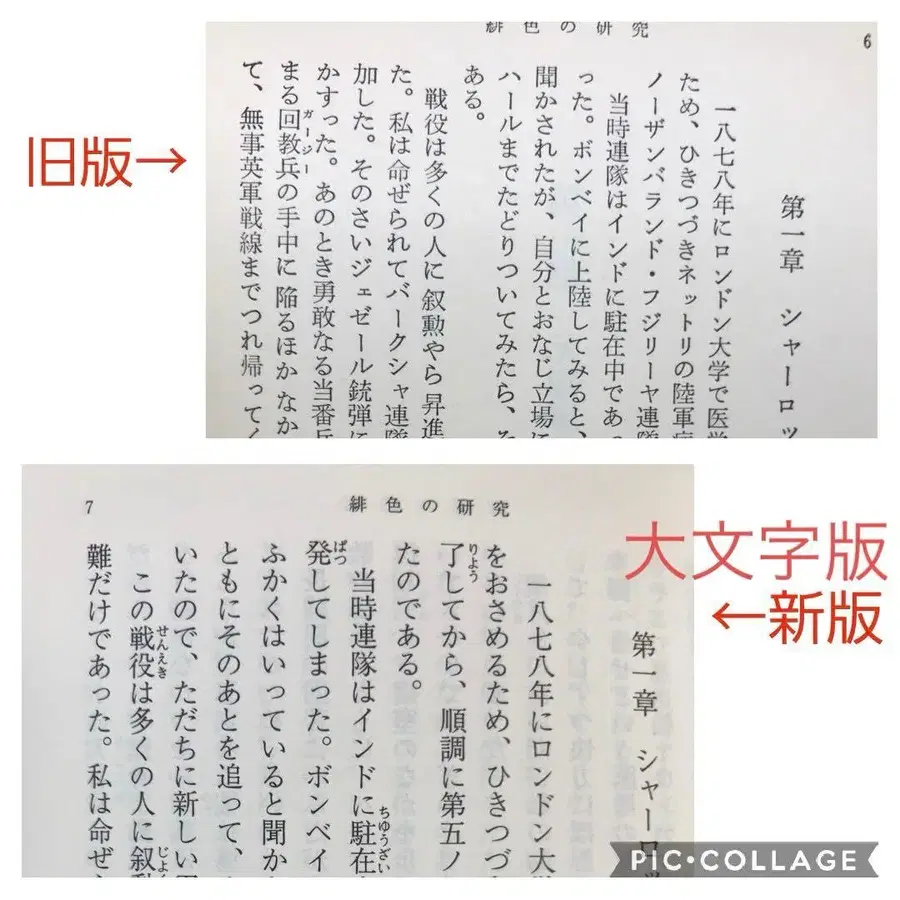 緋色の研究
6
旧版→
第一章 シャーロッ
一八七八年にロンドン大学で医学
ため、ひきつづきネットリの陸軍病
ノーザンバランド・フジリーヤ連隊
当時連隊はインドに駐在中であっ
った。ボンベイに上陸してみると、
聞かされたが、自分とおなじ立場に
ハールまでたどりついてみたら、そ
ある。
戦役は多くの人に叙勲やら昇進
た。私は命ぜられてバークシャ連隊
加した。そのさいジェゼール銃弾に
かすった。あのとき勇敢なる当番兵
まる回教兵の手中に陥るほかなか
ガージー
て、無事英軍戦線までつれ帰ってく
7
緋色の研究
大文字版
←新版
第一章 シャーロッ
一八七八年にロンドン大
をおさめるため、ひきつづ
了してから、順調に第五ノ
りょう
たのである。
当時連隊はインドに駐在
ちゅうざい
発してしまった。ボンベイ
ぱつ
ふかくはいっていると聞か
ともにそのあとを追って、
いたので、ただちに新しい
この戦役は多くの人に叙勲
せんえき
じょく
難だけであった。私は命ぜ
PIC•COLLAGE